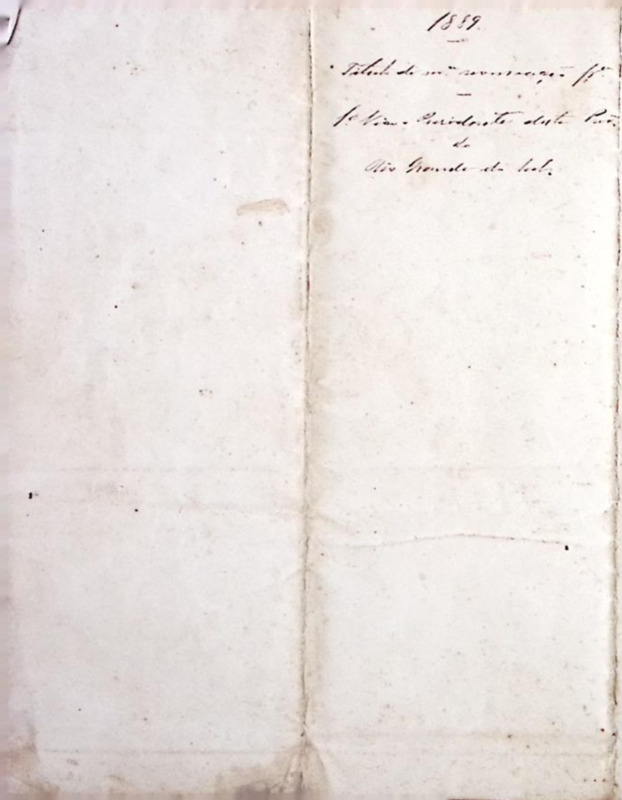 1889.
Titulo de m.ª nomeação p.ª
1º Vice-Presidente desta Prov.
do
Rio Grande do Sul.